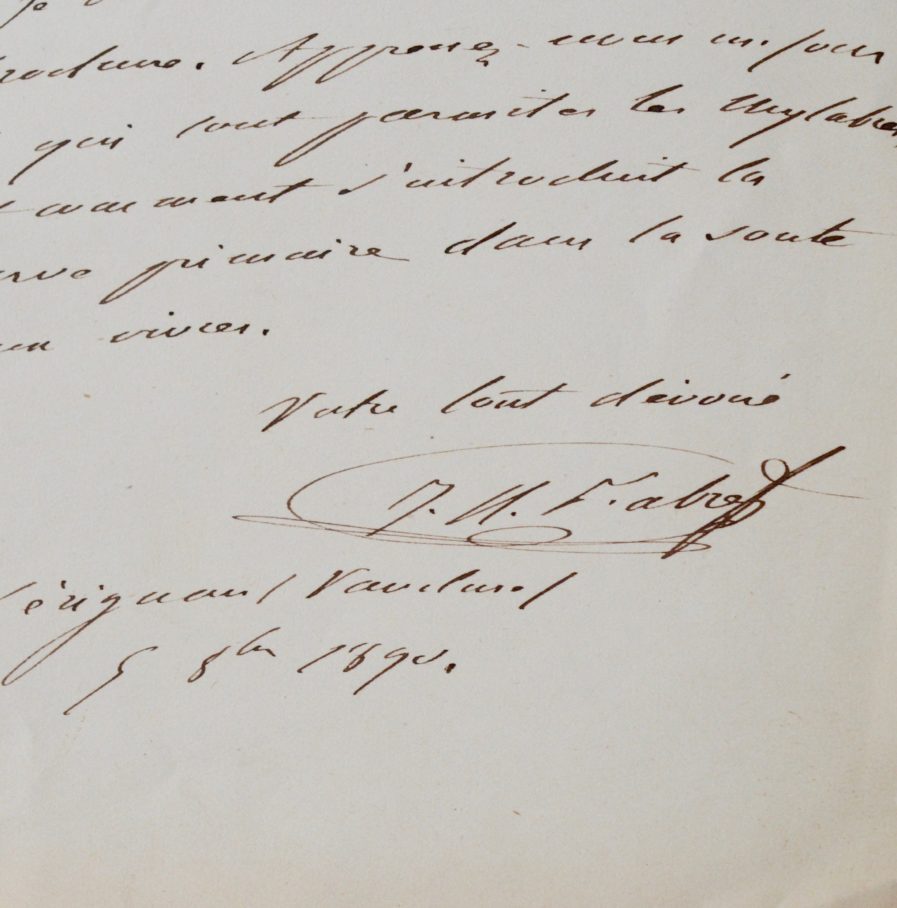 je
rochure. Apprenez-nous un jour
qui sont parasites les Mylabres,
t comment s'introduit la
arve primaire dans la soute
aux vivres.
Votre tout dévoué
J. H. Fabre
Sérignan (Vaucluse)
5 8bre 1890.